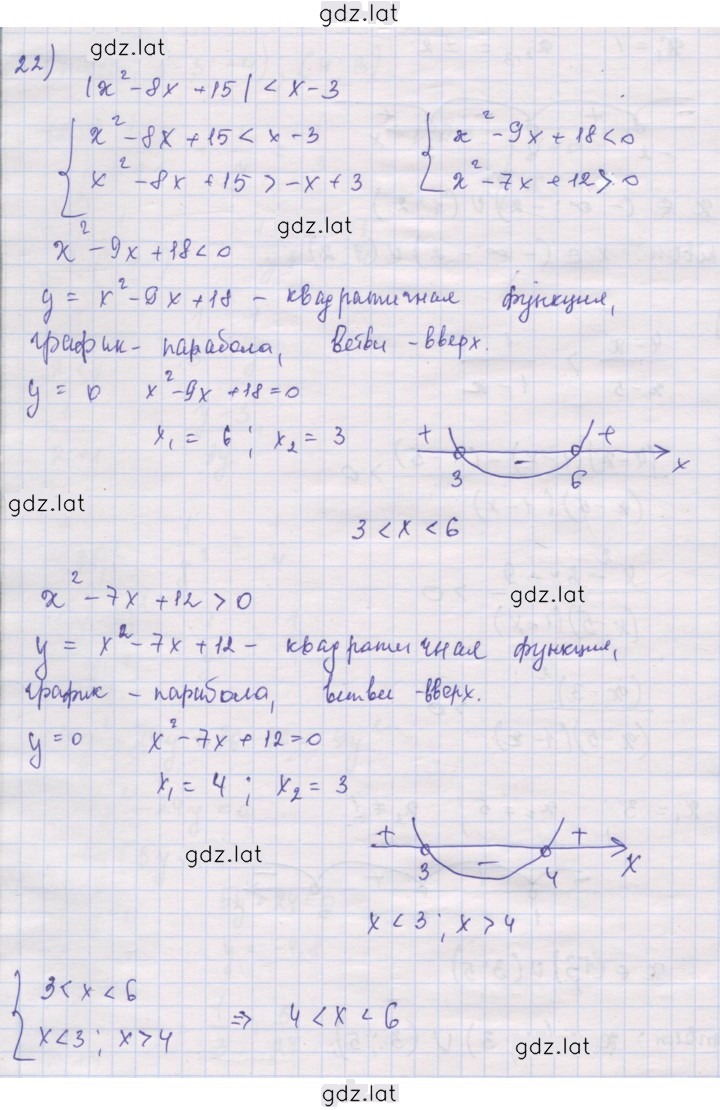 gdz.lat
gdz.lat
22)
|x² - 8x + 15| < x - 3
{ x² - 8x + 15 < x - 3    { x² - 9x + 18 < 0
{ x² - 8x + 15 > -x + 3    { x² - 7x + 12 > 0
gdz.lat
x² - 9x + 18 < 0
y = x² - 9x + 18 - квадратичная функция,
график - парабола, ветви - вверх.
y = 0    x² - 9x + 18 = 0
x₁ = 6 ; x₂ = 3
+ - +
3 6 x
gdz.lat
3 < x < 6
x² - 7x + 12 > 0
gdz.lat
y = x² - 7x + 12 - квадратичная функция,
график - парабола, ветви - вверх.
y = 0    x² - 7x + 12 = 0
x₁ = 4 ; x₂ = 3
+ - +
3 4 x
gdz.lat
x < 3 ; x > 4
{ 3 < x < 6
{ x < 3 ; x > 4    ⇒    4 < x < 6
gdz.lat
gdz.lat